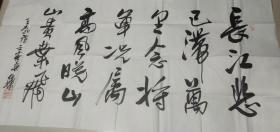 長江悲
已滯萬
里念將
單況屬
高風晚山
山黃葉飛